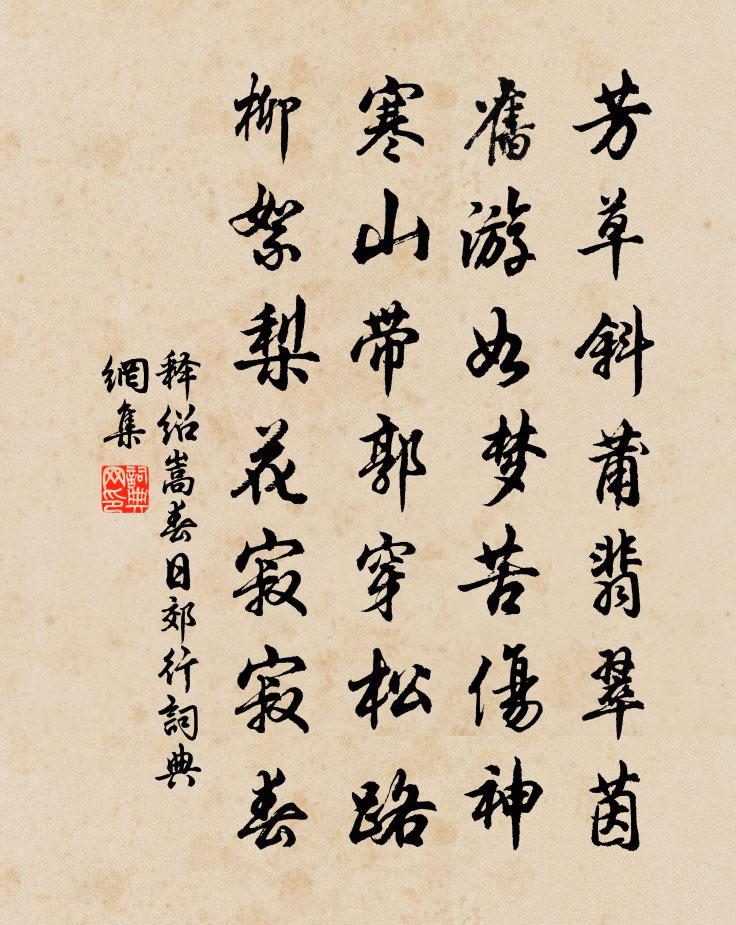 芳草斜莆翡翠茵
舊游如梦苦傷神
寒山带郭穿松路
柳絮梨花寂寂春
释绍嵩春日郊行詞典
網集
詞典
网印